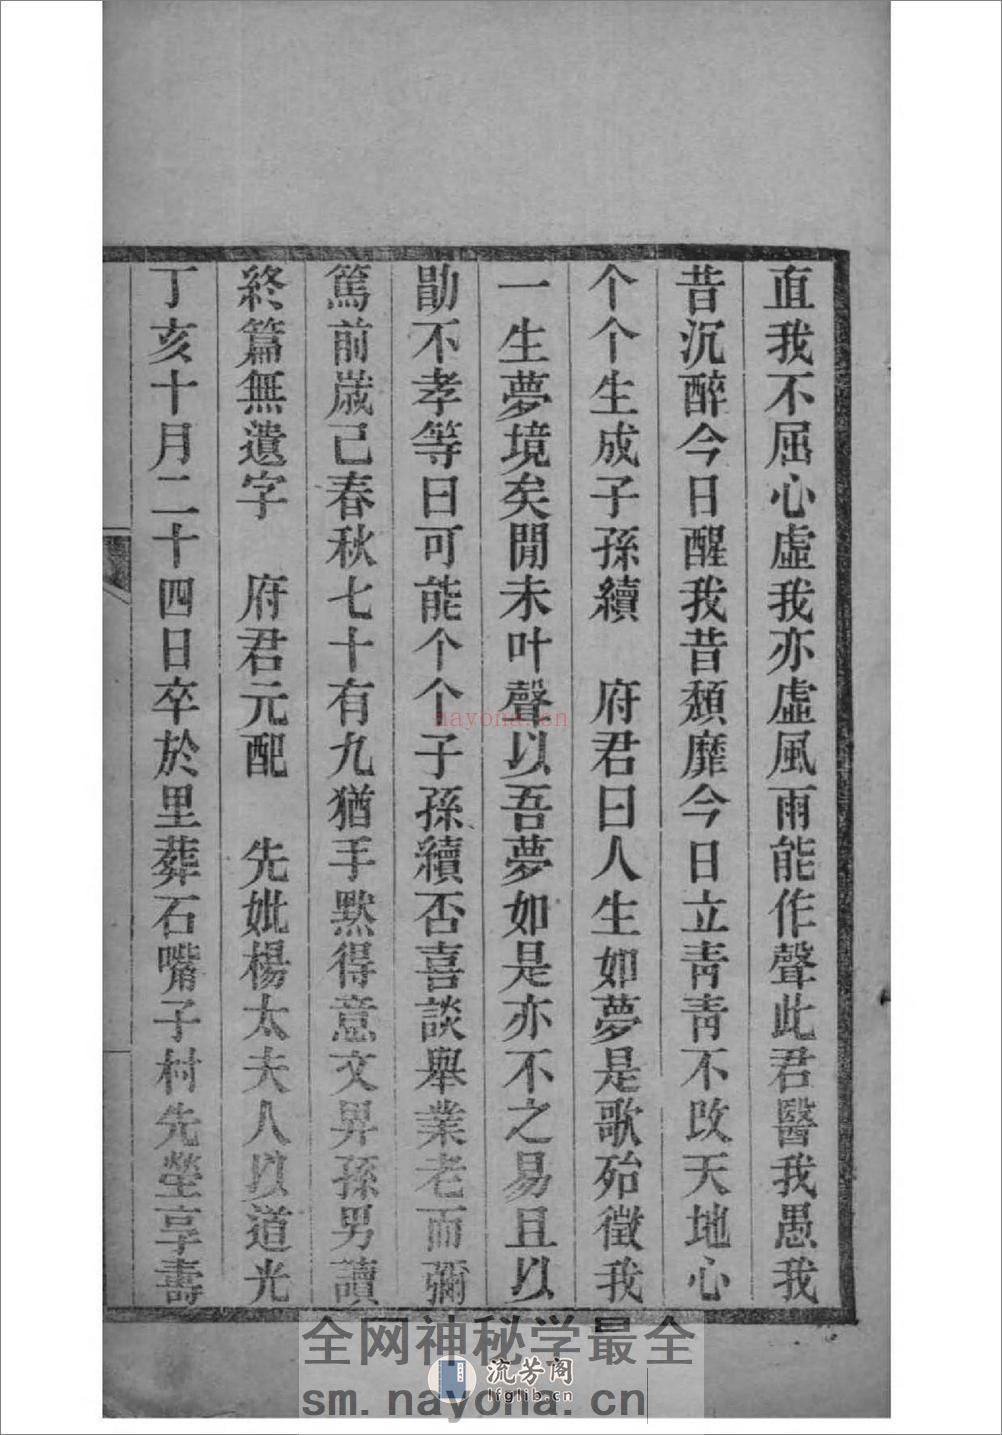 直我不屈心虛我亦虛風雨能作聲此君醫我愚我
昔沉醉今日醒我昔頹靡今日立青青不改天地心
个个生成子孫續　府君曰人生如夢是歌殆徵我
一生夢境矣閒未叶聲以吾夢如是亦不之易且以
勖不孝等曰可能个个子孫續否喜談舉業老而彌
篤前歲己春秋七十有九猶手默得意文畀孫男讀
終篇無遺字　府君元配　先妣楊太夫人以道光
丁亥十月二十四日卒於里葬石嘴子村先塋享壽
nayona.cn
全网神秘学最全
流芳阁
lfglib.cn
sm.nayona.cn